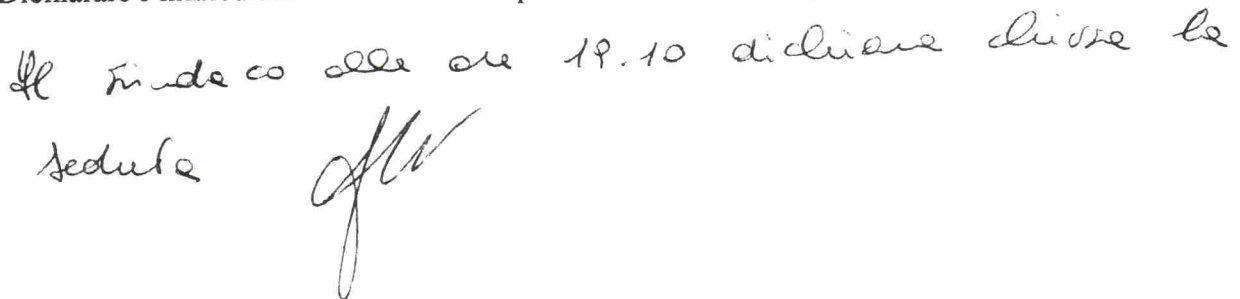 Dichiarare
Il Sindaco alle ore 19.10 dichiara chiusa la
seduta